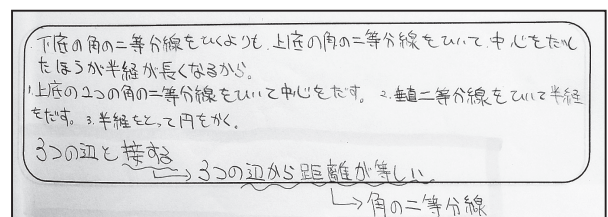 下底の角の二等分線をひくよりも、上底の角の二等分線をひいて、中心をだし
たほうが半経が長くなるから。
1.上底の2つの角の二等分線をひいて中心をだす。 2.垂直二等分線をひいて半経
をだす。 3.半経をとって円をかく。
3つの辺と接する
→3つの辺から距離が等しい
→角の二等分線